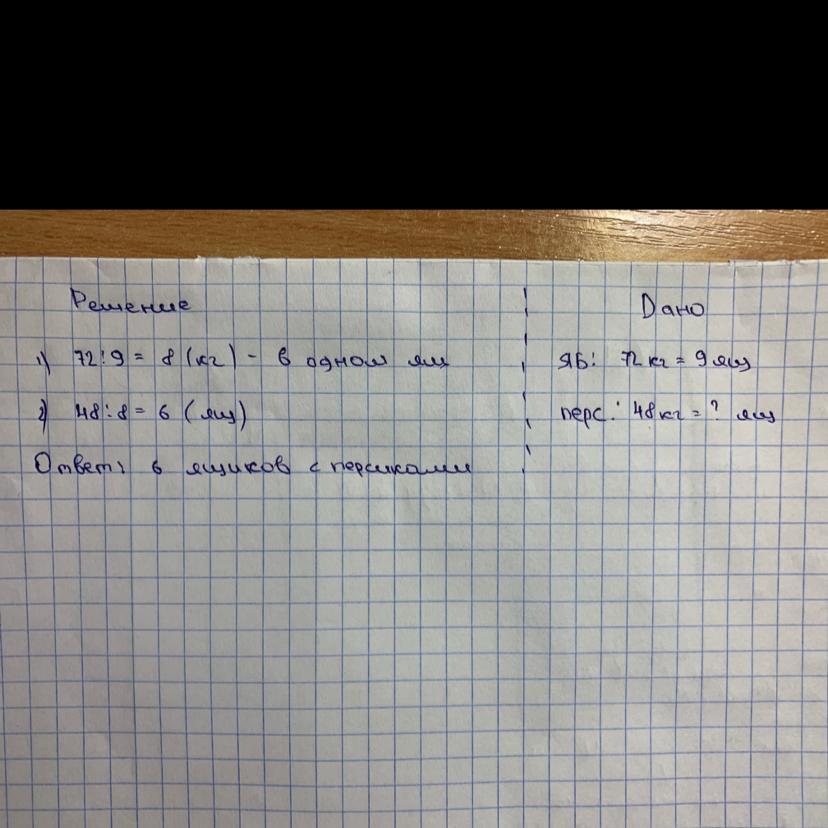 Решение
1) 72:9 = 8 (кг) - в одном ящ
2) 48:8 = 6 (ящ)
Ответ: 6 ящиков с персиками
Дано
ЯБ: 72 кг = 9 ящ
перс: 48 кг = ? ящ